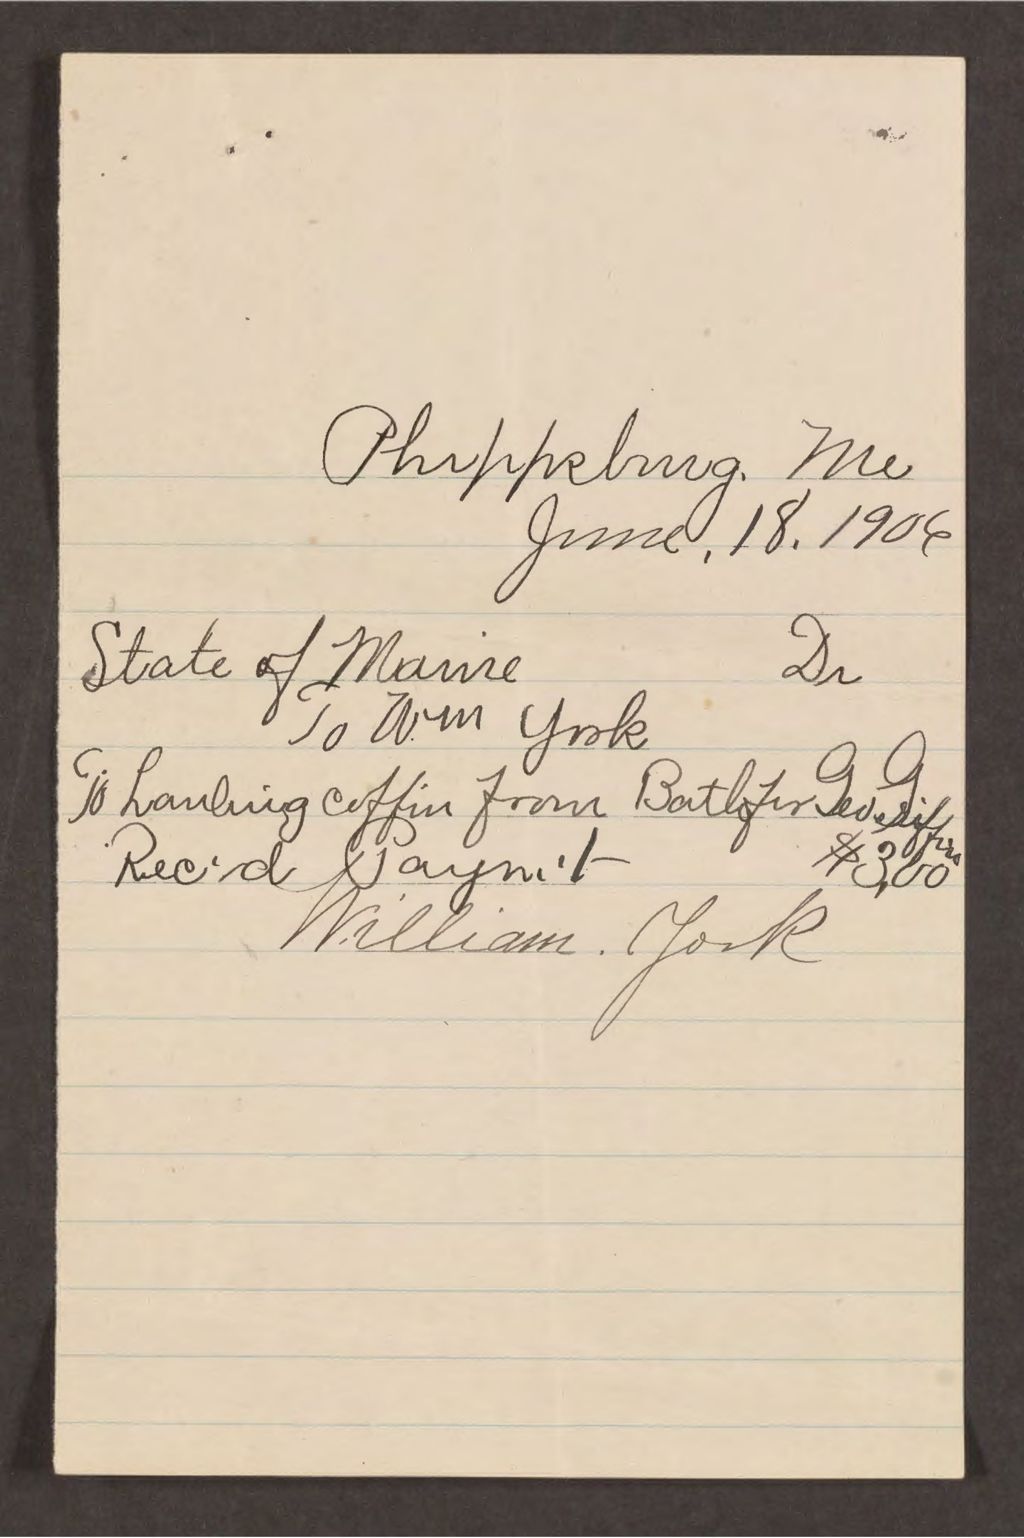 Phippsburg. Me
June, 18. 1906
State of Maine Dr
To Wm York
To hauling coffin from Bath for Geo. Griffin
Rec'd Paym't $3,00
William. York